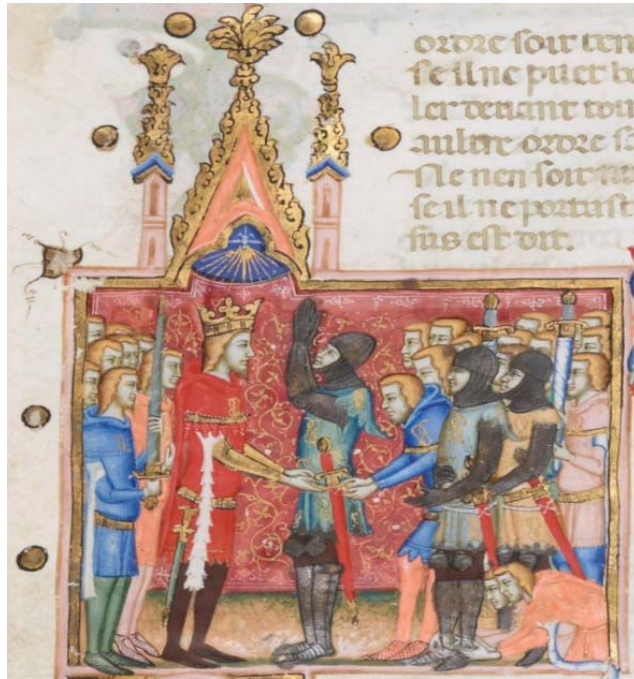 ordre soit ten
se il ne puet b
ler devant tou
aultre ordre s
Ne nen soit
se il ne portast
sus est dit.